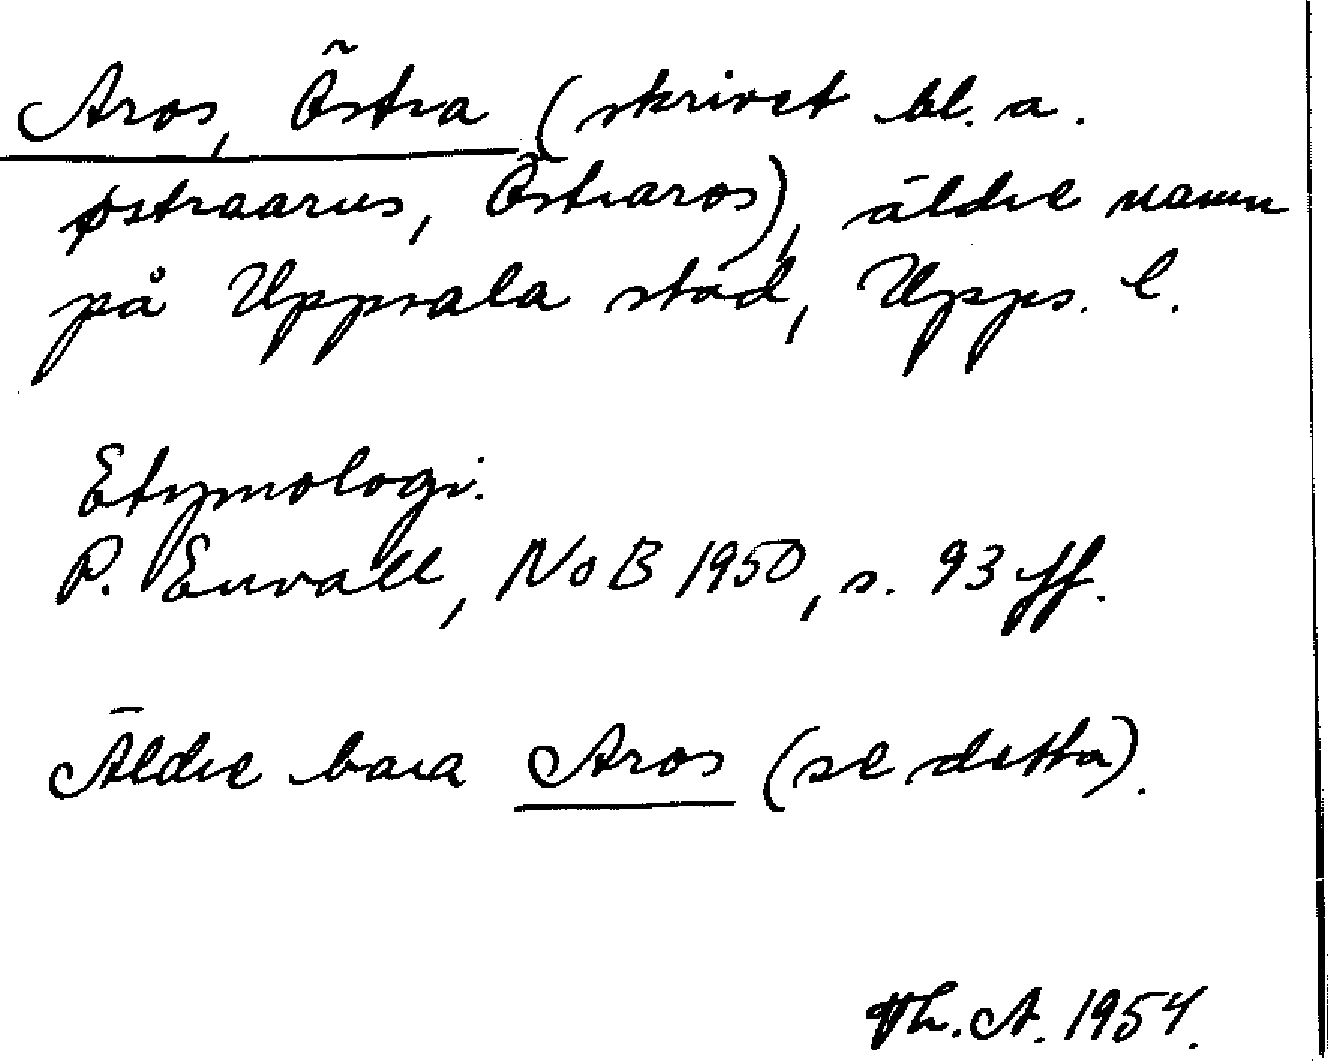 Aros, Östra (skrivet bl. a.
østraarus, Östraros), äldre namn
på Uppsala stad, Upps. l.
Etymologi.
P. Envall, NoB 1950, s. 93 ff.
Äldre bara Aros (se detta).
Th. A. 1954.